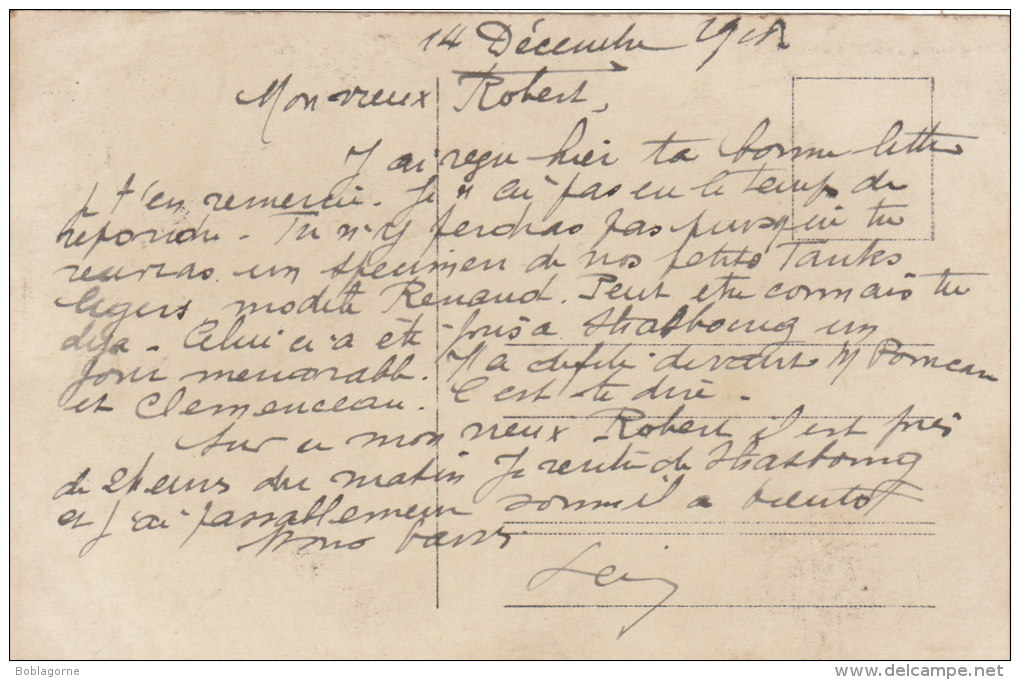 14 Décembre 1918
Mon vieux Robert,
J'ai reçu hier ta bonne lettre
je t'en remercie. Je n'ai pas eu le temps de
repondre. Tu n'y perdras pas puisque tu
recevras un specimen de nos petits Tanks
legers, modele Renaud. Peut etre connais tu
deja. Celui ci a été pris a Strasbourg un
jour memorable. Il a defilé devant M Poincare
et Clemenceau. C'est te dire.
Sur ce mon vieux Robert il est près
de 2 heures du matin Je rentre de Strasbourg
et j'ai passablement sommeil a bientot
Bons baisers
Boblagorne
www.delcampe.net